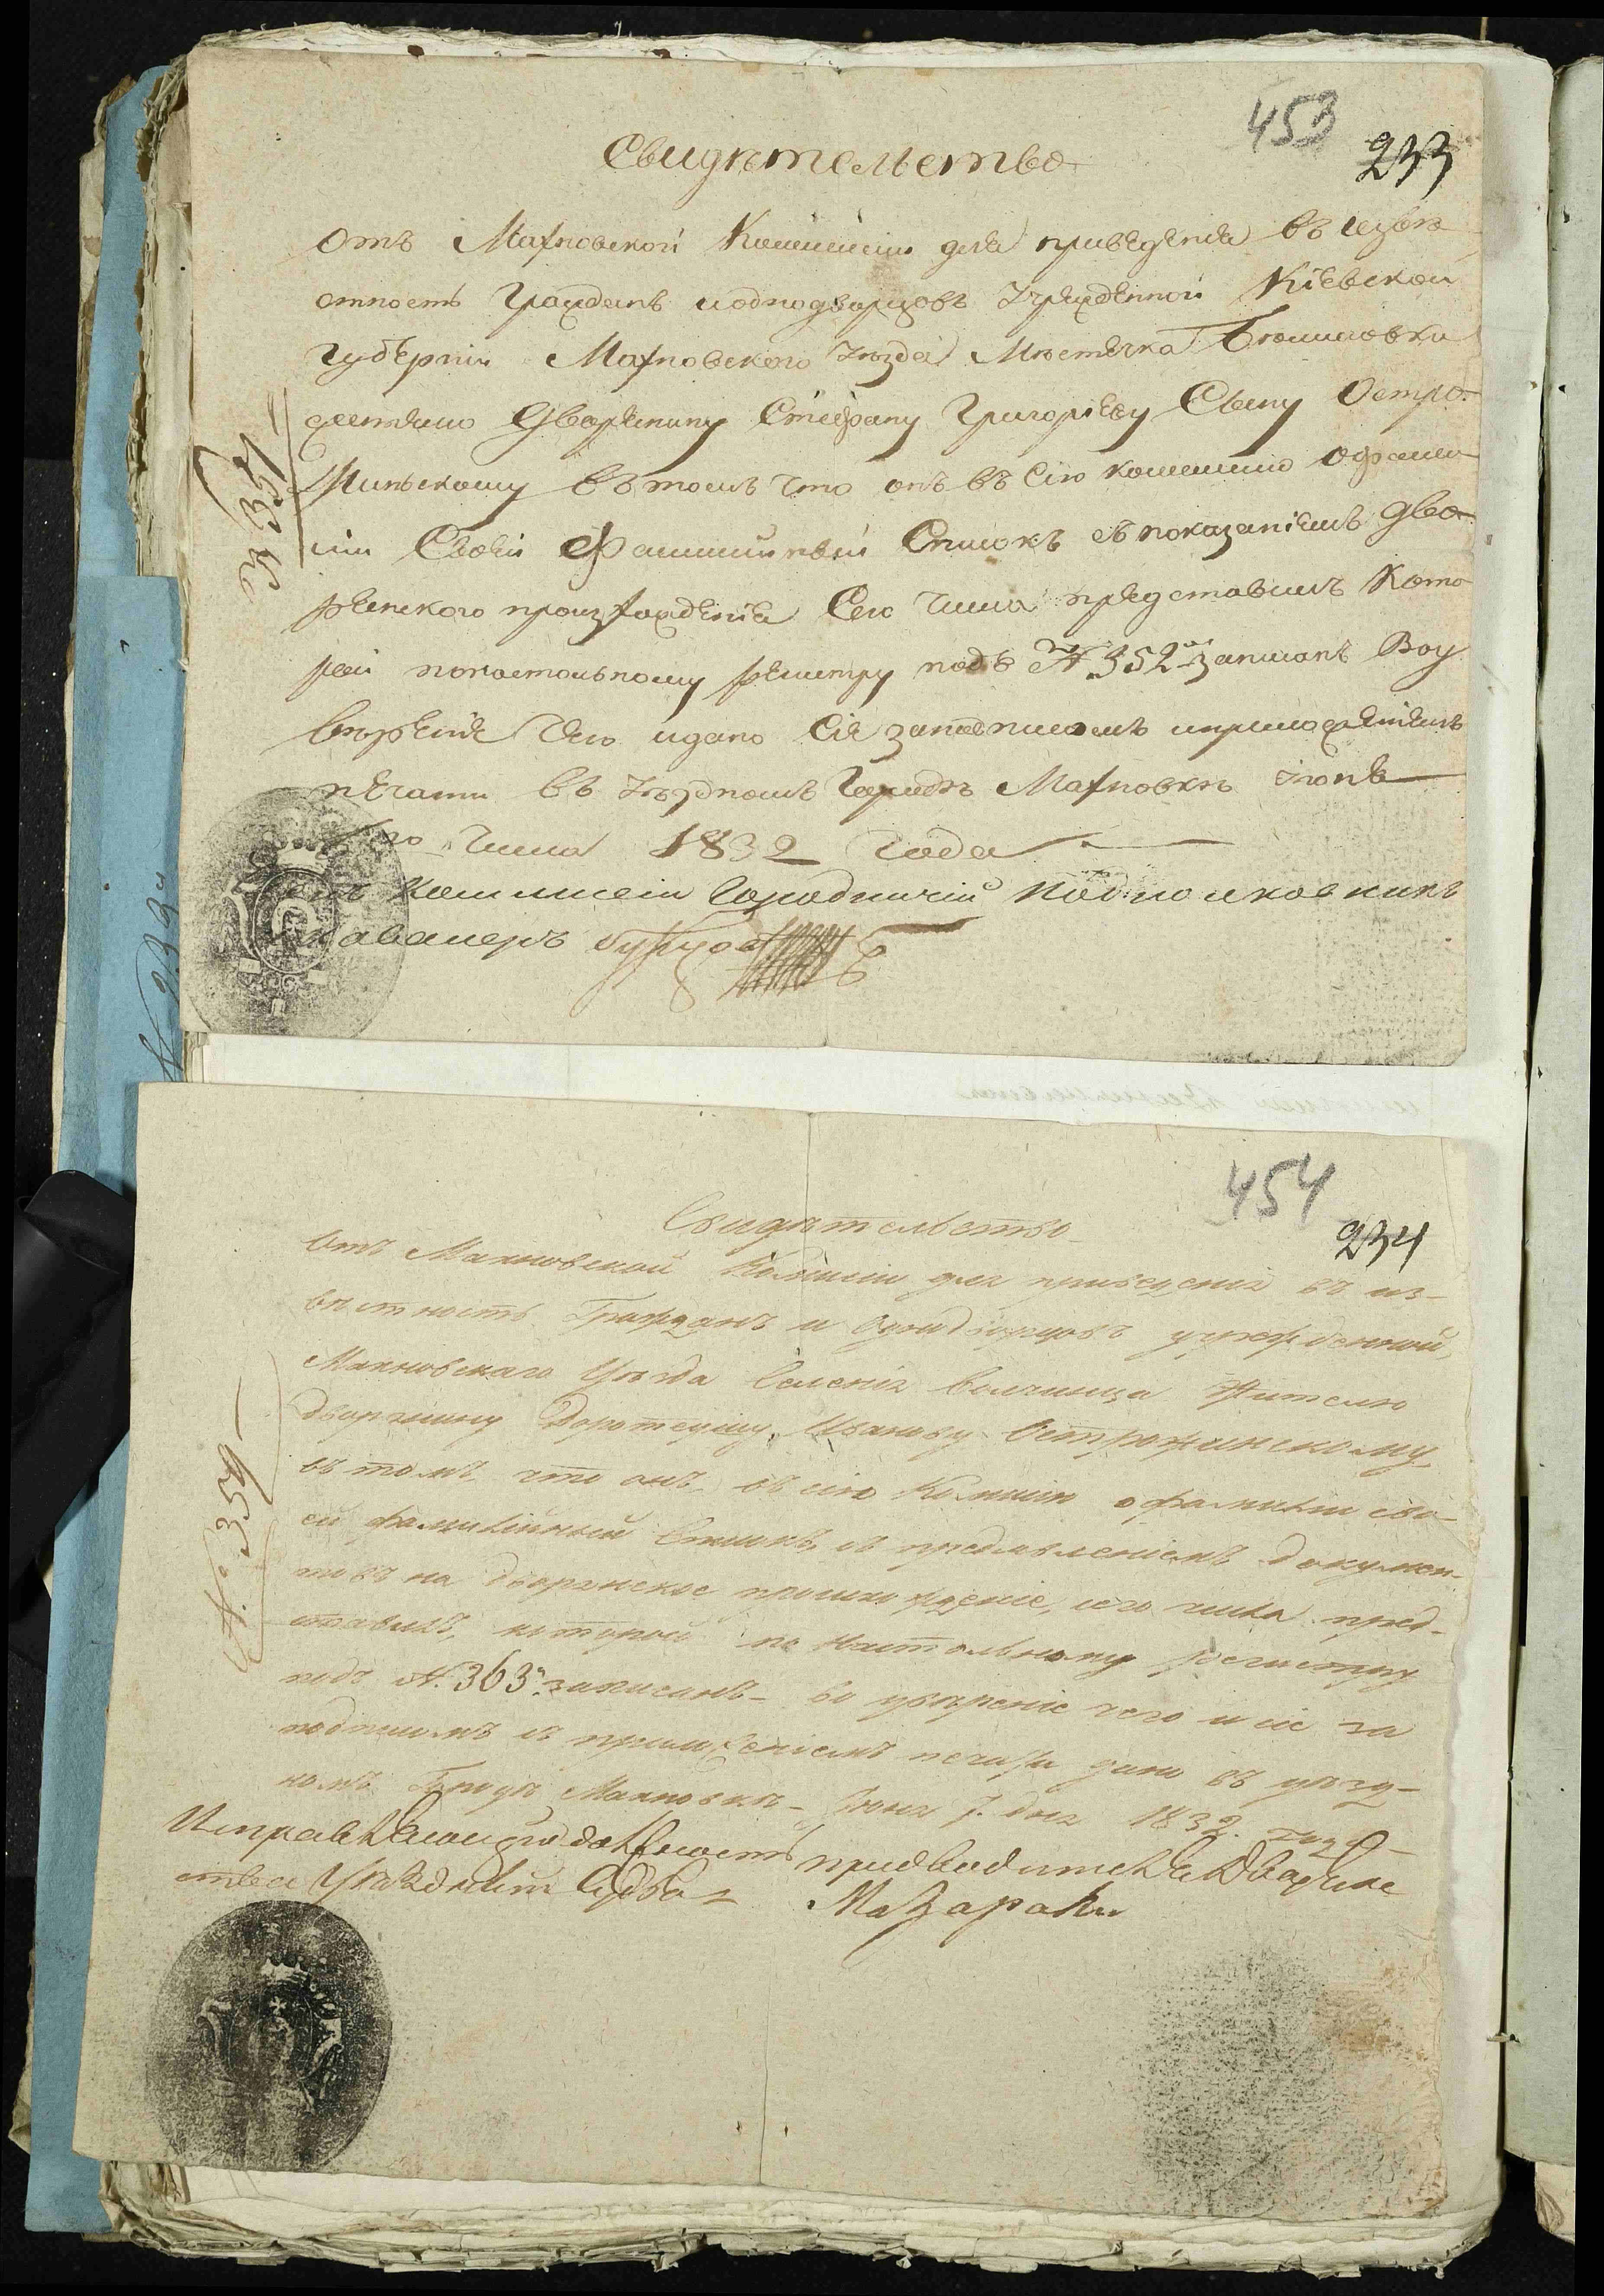 453
233
Свидѣтельство
отъ Махновской Коммисіи для приведенія въ извѣ
стность Граждан иоднодворцовъ Учрежденной Кіевской
Губерніи Махновского Уѣзда Мѣстечка
жителю Дворянину Стефану Григорьеву Сыну Остро
жинскому въ томъ что онъ въ Сію комисию офами
ліи Своей Фамилийный Списокъ съ показаніемъ дво
рянского происхожденія Сего числа представилъ Кото
рый понастольному реистру подъ № 352м записанъ Воу
вѣреніе чего идано Сіе заподписомъ иприложеніемъ
печати въ Уѣздномъ Городѣ Махновкѣ Іюня
числа 1832 года
Коммисіи Городничій Подполковникъ
кавалеръ
№ 357
454
234
Свидѣтельство
Отъ Махновской Комисіи для приведенія въ из-
вѣстность Гражданъ и Однодворцовъ учрежденной,
Махновскаго Уѣзда Селенія Волчинца Жителю
Дворянину Доротеушу Иванову Острожинскому
въ томъ что онъ въ сію Комисію о фамиліи сво-
ей фамилійный Списокъ, съ предъявленіемъ докумен-
товъ на дворянское происхожденіе, сего числа пред-
ставилъ, которой по Настольному регистру
подъ №. 363м записанъ- во увѣреніе чего и сіе за
подписомъ и приложеніемъ печати дано въ уѣзд-
номъ Городѣ Махновкѣ- Іюня 7. дня 1832. года
Исправляющій должность предводителя Дворян
ства Уѣздный Судья Мазараки
№. 359